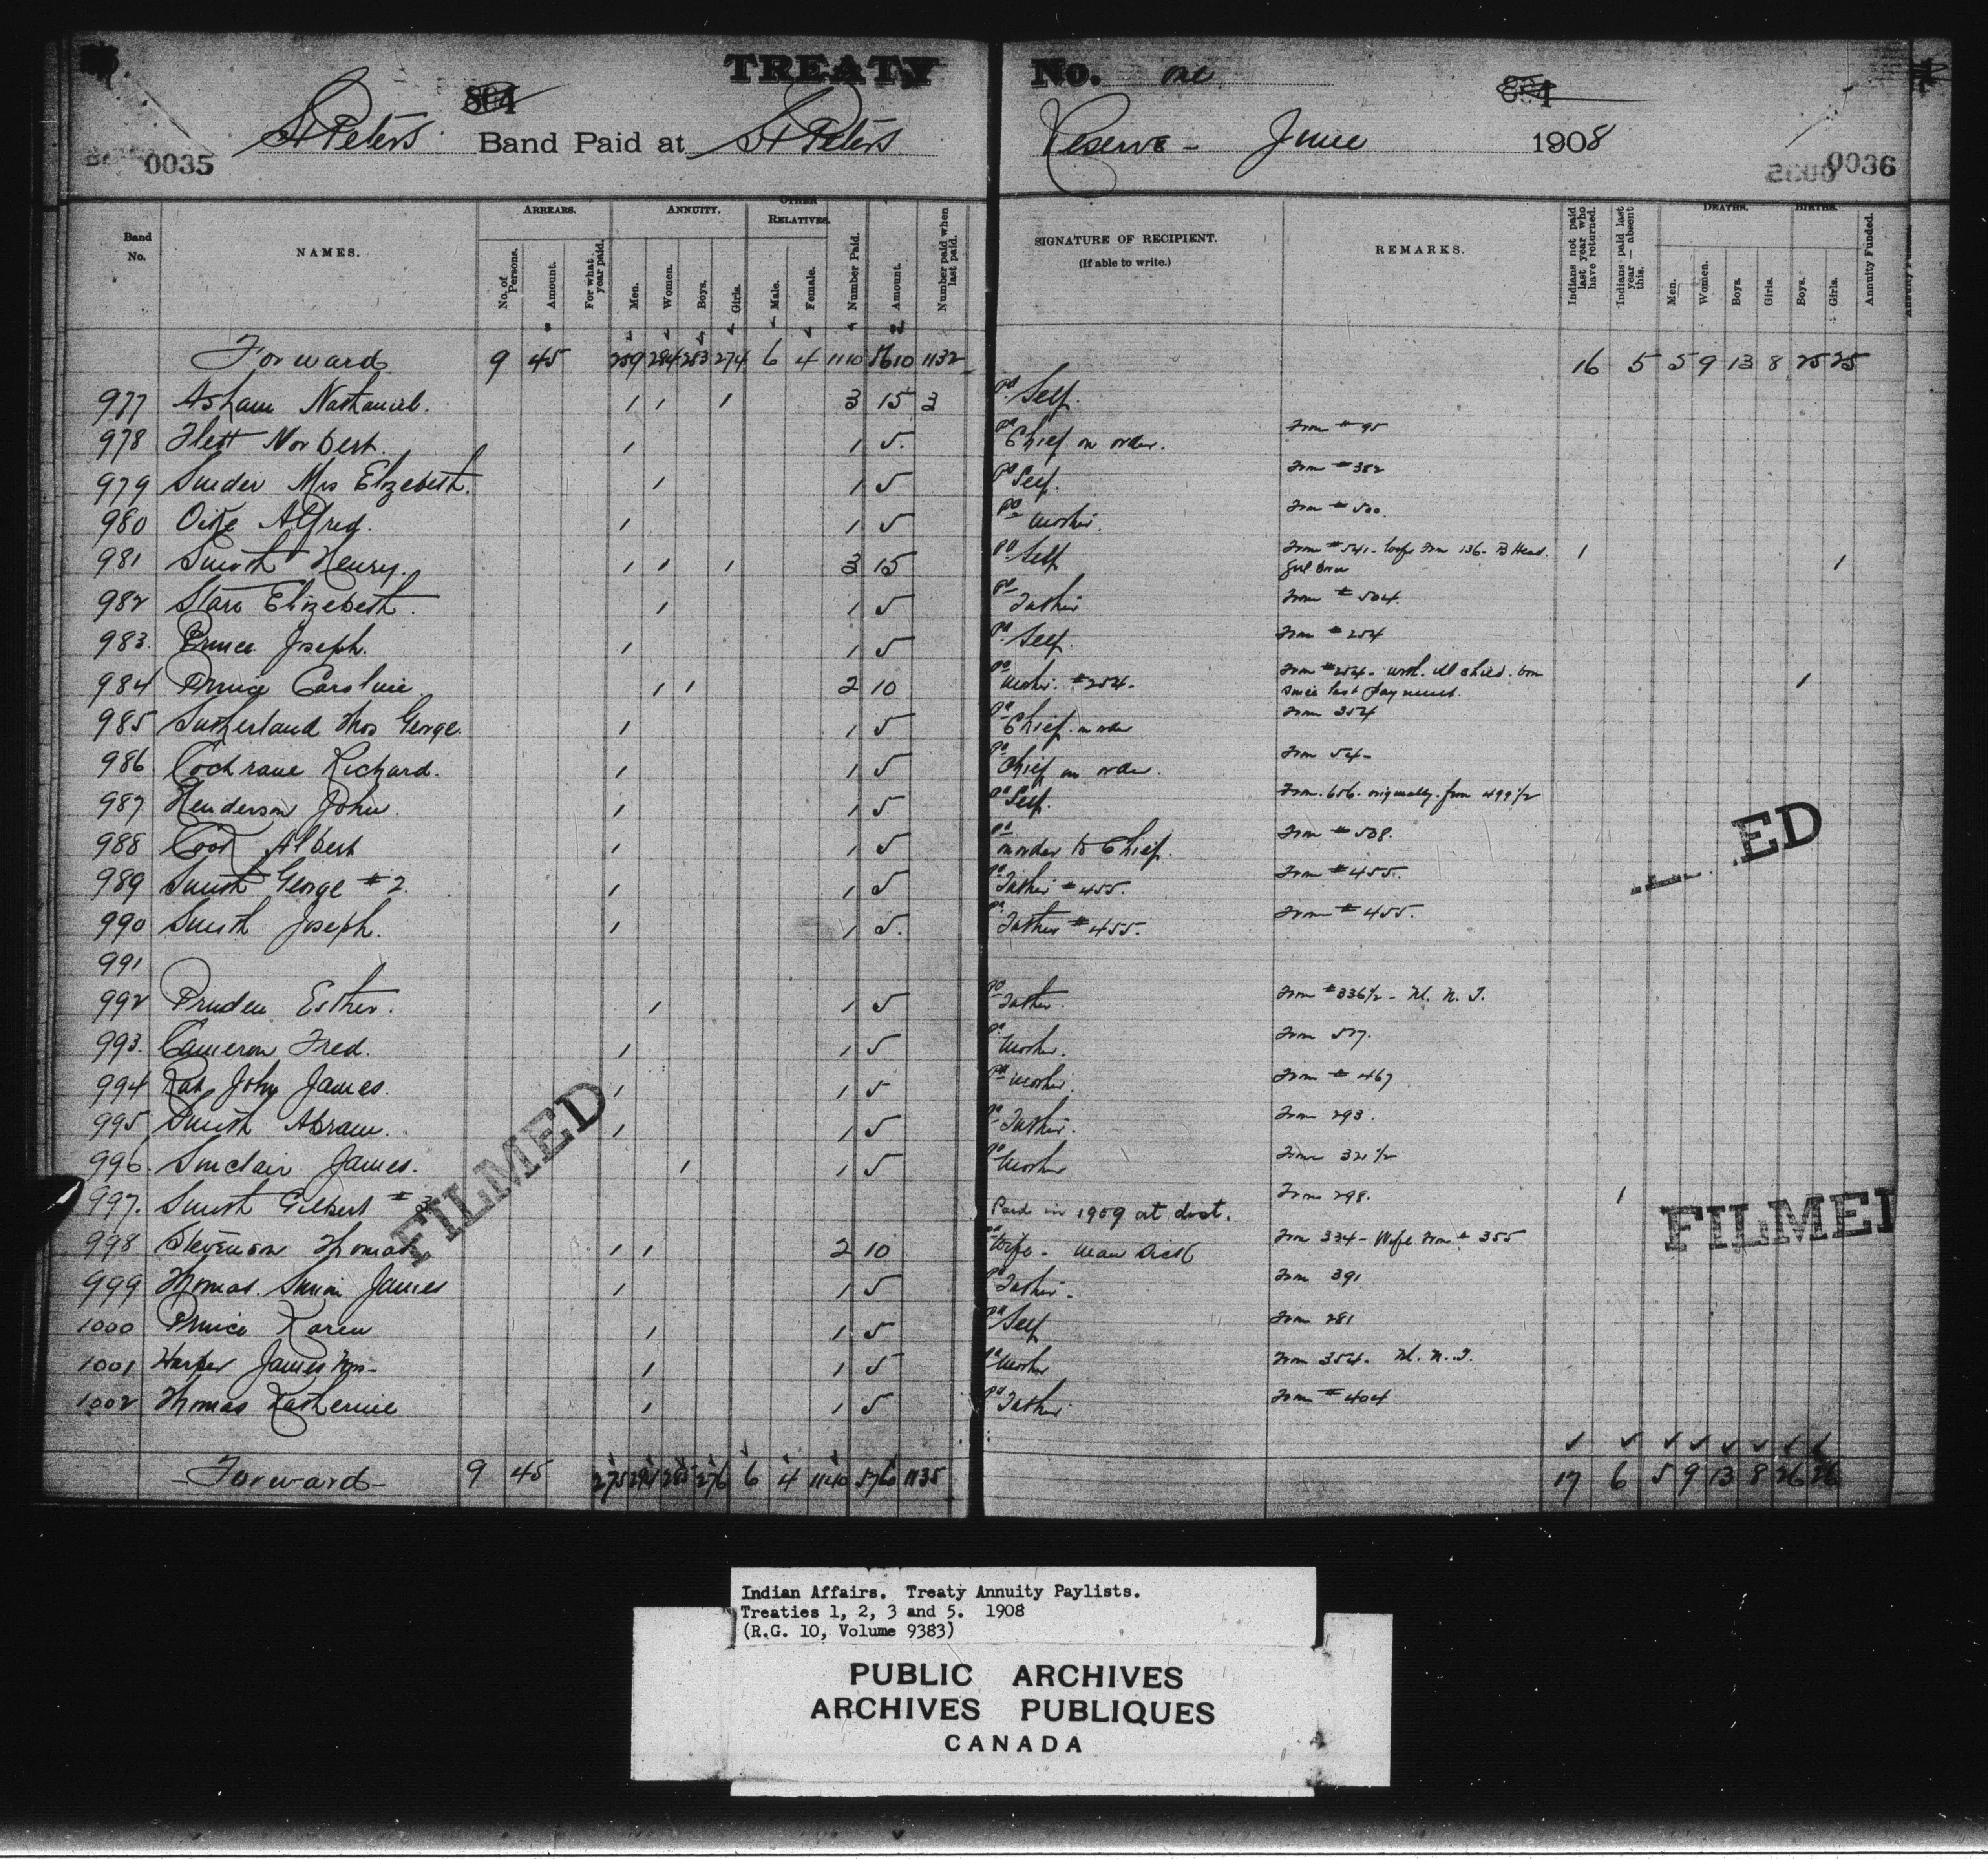 TREATY No. one
St Peters Band Paid at St Peters Reserve - June 1908
0035 0036
Band No. NAMES. ARREARS. No. of Persons. Amount. For what year paid. ANNUITY. Men. Women. Boys. Girls. OTHER RELATIVES. Male. Female. Number Paid. Amount. Number paid when last paid. SIGNATURE OF RECIPIENT. (If able to write.) REMARKS. Indians not paid last year who have returned. Indians paid last year — absent this. DEATHS. Men. Women. Boys. Girls. BIRTHS. Boys. Girls. Annuity Funded.
Forward 9 45 284 283 274 6 4 1110 5610 1132 16 5 5 9 13 8 25 25
977 Asham Nathaniel. 1 1 1 3 15 3 Pd Self.
978 Flett Norbert. 1 1 5. Pd Chief on order. From # 95
979 Mrs Elizebeth. 1 1 5 Pd Self. From # 382
980 Alfred. 1 1 5 Pd Mother. From # 500.
981 Smith Henry. 1 1 1 3 15 Pd Self From # 541 - Wife from 136 - B Head. 1 1
girl born
982 Starr Elizebeth. 1 1 5 Pd Father From # 504.
983. Prince Joseph. 1 1 5 Pd Self. From # 254
984 Prince Caroline. 1 1 2 10 Pd Mother. #254 - From #254 - with. ill child. born 1
since last payment.
985 Sutherland Thos George. 1 1 5 Pd Chief on order From 354
986 Cochrane Richard. 1 1 5 Pd Chief on order. From 54 -
987 Henderson John. 1 1 5 Pd Self. From. 656. originally. from 499 1/2
988 Cook Albert 1 1 5 Pd on order to Chief. From # 508.
989 Smith George # 2. 1 1 5 Pd Father # 455. From # 455.
990 Smith Joseph. 1 1 5. Pd Father # 455. From # 455.
991
992 Pruden Esther. 1 1 5 Pd Father. From #336 1/2 - M. N. T.
993. Cameron Fred. 1 1 5 Pd Mother. From 507.
994 John James. 1 1 5 Pd Mother. From # 467
995 Smith Abram. 1 1 5 Pd Father. From 293.
996. Sinclair James. 1 1 5 Pd Mother From 321 1/2
997. Smith Gilbert # 3 Paid in 1909 at dist. From 298. 1
998 Stevenson Thomas 1 1 2 10 Pd Wife - Man From 334 - Wife from # 355
999 Thomas. Simon James 1 1 5 Pd Father. From 391
1000 Prince Karen 1 1 5 Pd Self From 281
1001 Harper James Mrs - 1 1 5 Pd Mother From 354 - M. N. T.
1002 Thomas Katherine 1 1 5 Pd Father From # 404
Forward - 9 45 275 291 285 276 6 4 1140 5760 1135 17 6 5 9 13 8 26 26
FILMED
ED
FILMED
Indian Affairs. Treaty Annuity Paylists.
Treaties 1, 2, 3 and 5. 1908
(R.G. 10, Volume 9383)
PUBLIC ARCHIVES
ARCHIVES PUBLIQUES
CANADA